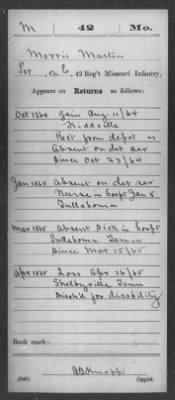 M 42 Mo.
Morris Martin
Pvt, Co. E, 42 Reg't Missouri Infantry.
Appears on
Returns as follows:
Oct 1864 Gain Aug 11/64
Kiddville
Rect from depot
Absent on det ser
since Oct 23/64
Jan 1865 Absent on det ser
Nurse in hospt Jan 8
Tullahoma
Mar 1865 Absent Sick in hospt
Tullahoma Tenn
Since Mar 15/65
Apr 1865 Loss Apr 16/65
Shelbyville Tenn
Disch'd for disability
Book mark:
(546) Copyist.